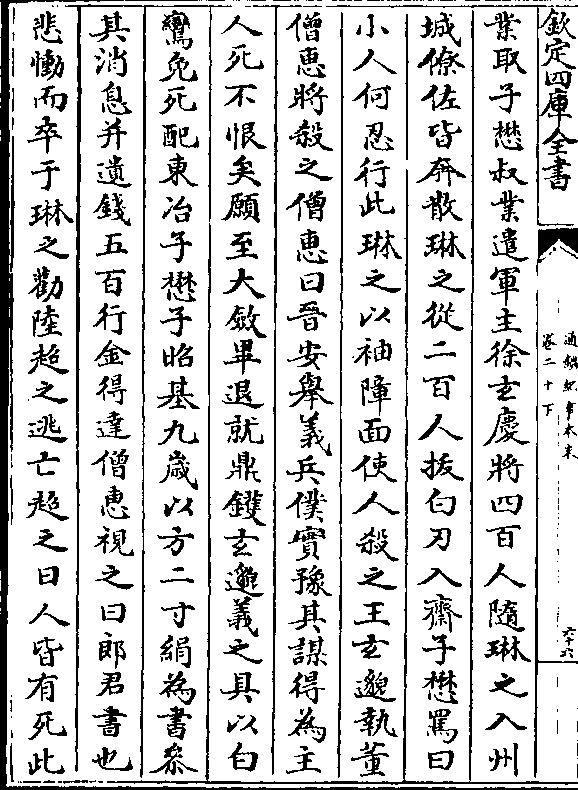 欽定四庫全書
通鑑紀事本末
卷二十下
六十六
業取子懋叔業遣軍主徐玄慶將四百人隨琳之入州
城僚佐皆奔散琳之從二百人拔白刃入齋子懋罵曰
小人何忍行此琳之以袖障面使人殺之王玄邈執董
僧惠將殺之僧惠曰晉安舉義兵僕實豫其謀得為主
人死不恨矣願至大斂畢退就鼎鑊玄邈義之具以白
鸞免死配東冶子懋子昭基九歲以方二寸絹為書參
其消息并遺錢五百行金得達僧惠視之曰郎君書也
悲慟而卒于琳之勸陸超之逃亡超之曰人皆有死此